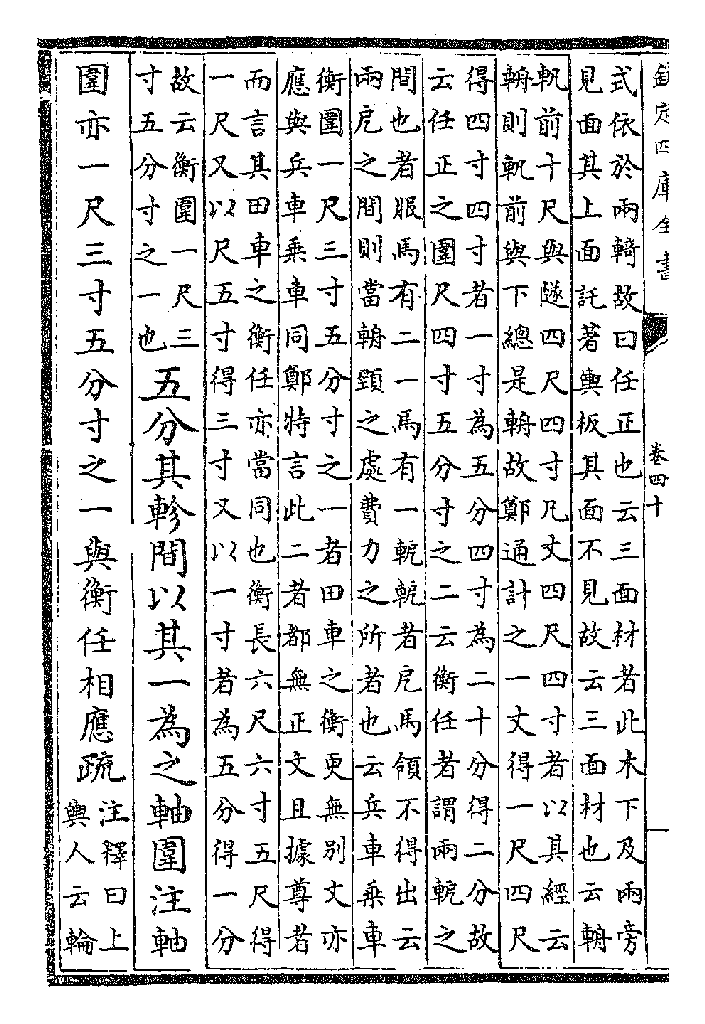 欽定四庫全書
卷四十
式依於兩輢故曰任正也云三面材者此木下及兩旁
見面其上面託著輿板其面不見故云三面材也云輈
軓前十尺與隧四尺四寸凡丈四尺四寸者以其經云
輈則軓前與下總是輈故鄭通計之一丈得一尺四尺
得四寸四寸者一寸為五分四寸為二十分得二分故
云任正之圍尺四寸五分寸之二云衡任者謂兩軛之
間也者服馬有二一馬有一軛軛者厄馬領不得出云
兩厄之間則當輈頸之處費力之所者也云兵車乘車
衡圍一尺三寸五分寸之一者田車之衡更無別文亦
應與兵車乘車同鄭特言此二者都無正文且據尊者
而言其田車之衡任亦當同也衡長六尺六寸五尺得
一尺又以尺五寸得三寸又以一寸者為五分得一分
故云衡圍一尺三
寸五分寸之一也
五分其軫間以其一為之軸圍注軸
圍亦一尺三寸五分寸之一與衡任相應疏
注釋曰上
輿人云輪